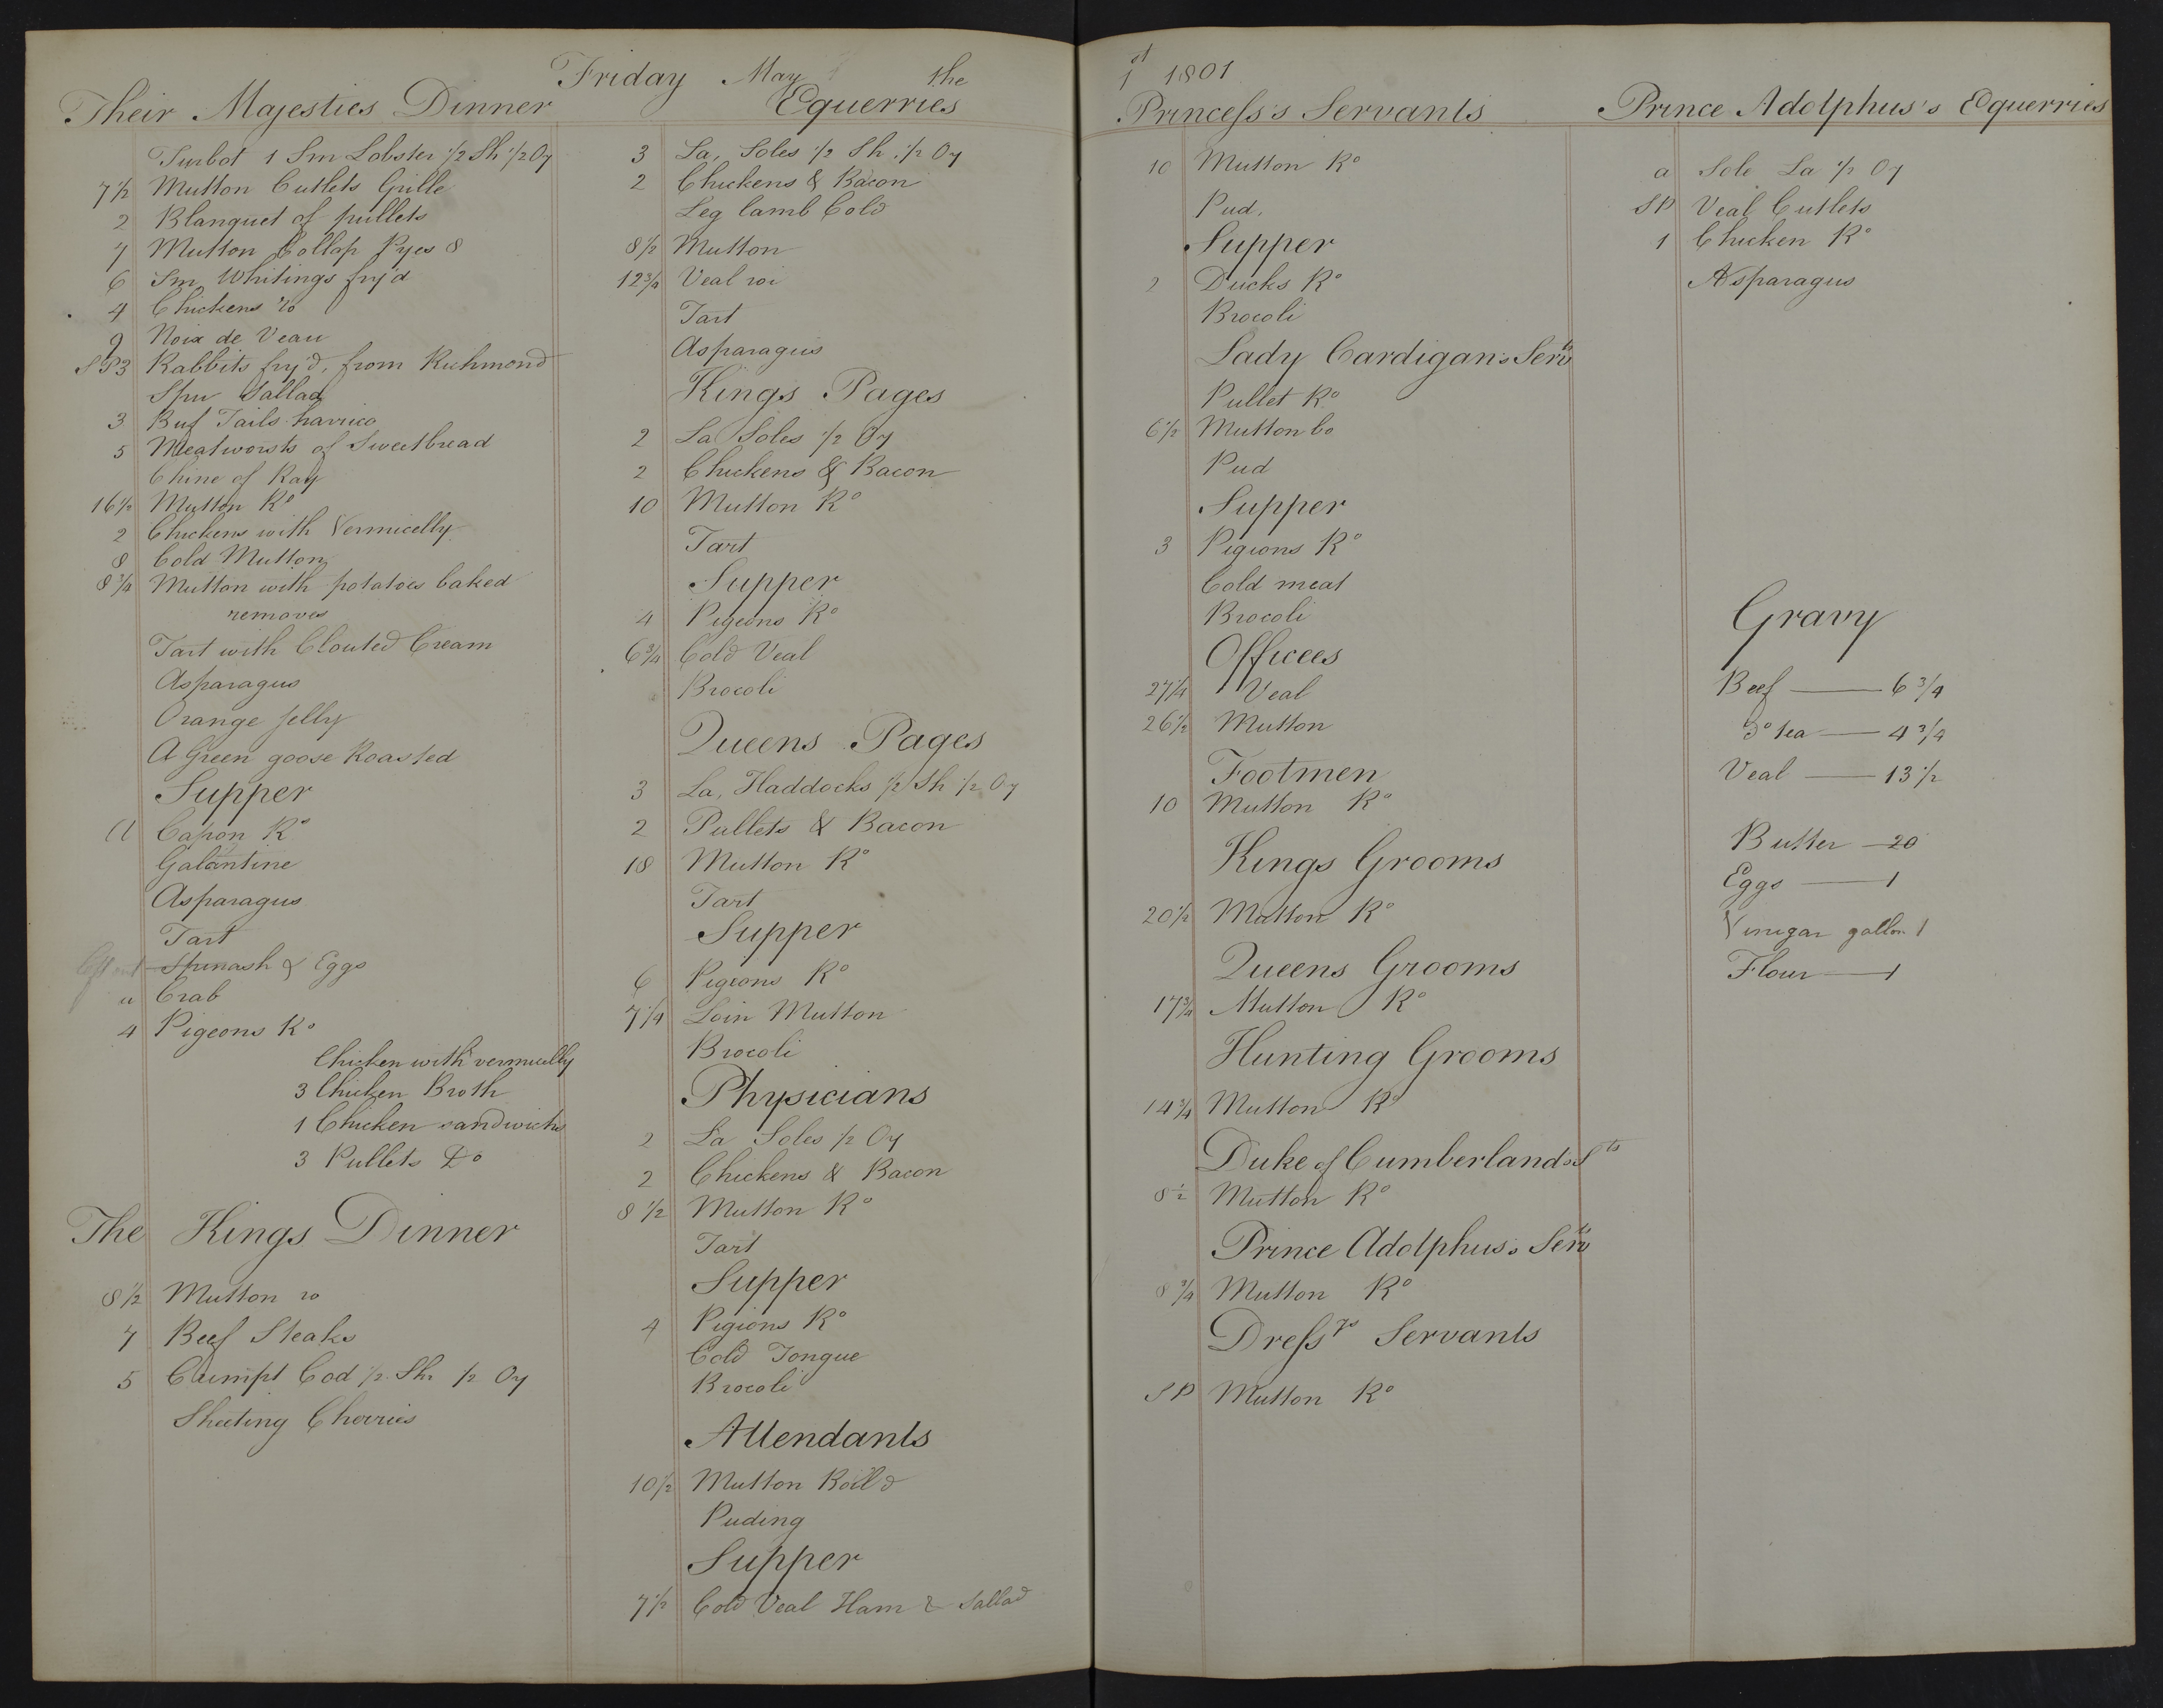 Friday May the 1st 1801
Their Majesties Dinner
Turbot 1 Sm Lobster 1/2 Sh 1/2 Oy
7 1/2 Mutton Cutlets Grille
2 Blanquet of pullets
7 Mutton Collap Pyes 8
6 Sm Whitings fry'd
4 Chickens ro
9 Noix de Veau
SP3 Rabbits fry'd, from Richmond
Spu Sallad
3 Buf Tails harrico
5 Meatworsts of Sweetbread
Chine of Ray
16 1/2 Mutton Ro
2 Chickens with Vermicelly
8 Cold Mutton
8 3/4 Mutton with potatoes baked
removes
Tart with Clouted Cream
Asparagus
Orange Jelly
A Green goose Roasted
Supper
a Capon Ro
Galantine
Asparagus
Tart
left out Spinash & Eggs
a Crab
4 Pigeons Ro
Chicken with vermicelly
3 Chicken Broth
1 Chicken sandwichs
3 Pullets Do
The Kings Dinner
8 1/2 Mutton ro
7 Beef Steaks
5 Crimpt Cod 1/2 Shr 1/2 Oy
Cherries
Equerries
3 La, Soles 1/2 Sh 1/2 Oy
2 Chickens & Bacon
Leg lamb Cold
8 1/2 Mutton
12 3/4 Veal roi
Tart
Asparagus
Kings Pages
2 La Soles 1/2 Oy
2 Chickens & Bacon
10 Mutton Ro
Tart
Supper
4 Pigeons Ro
6 3/4 Cold Veal
Brocoli
Queens Pages
3 La, Haddocks 1/2 Sh 1/2 Oy
2 Pullets & Bacon
18 Mutton Ro
Tart
Supper
6 Pigions Ro
7 1/4 Loin Mutton
Brocoli
Physicians
2 La Soles 1/2 Oy
2 Chickens & Bacon
8 1/2 Mutton Ro
Tart
Supper
4 Pigions Ro
Cold Tongue
Brocoli
Attendants
10 1/2 Mutton Boil'd
Puding
Supper
7 1/2 Cold Veal Ham & Sallad
Princess's Servants
10 Mutton Ro
Pud,
Supper
2 Ducks Ro
Brocoli
Lady Cardigans Servts
Pullet Ro
6 1/2 Mutton bo
Pud
Supper
3 Pigions Ro
Cold meat
Brocoli
Offices
27 1/4 Veal
26 1/2 Mutton
Footmen
10 Mutton Ro
Kings Grooms
20 1/2 Mutton Ro
Queens Grooms
17 3/4 Mutton Ro
Hunting Grooms
14 3/4 Mutton Ro
Duke of Cumberlands Sts
8 1/2 Mutton Ro
Prince Adolphus's Servts
8 3/4 Mutton Ro
Dressrs Servants
SP Mutton Ro
Prince Adolphus's Equerries
a Sole La 1/2 Oy
SP Veal Cutlets
1 Chicken Ro
Asparagus
Gravy
Beef — 6 3/4
Do tea — 4 3/4
Veal — 13 1/2
Butter — 20
Eggs — 1
Vinegar gallon 1
Flour — 1